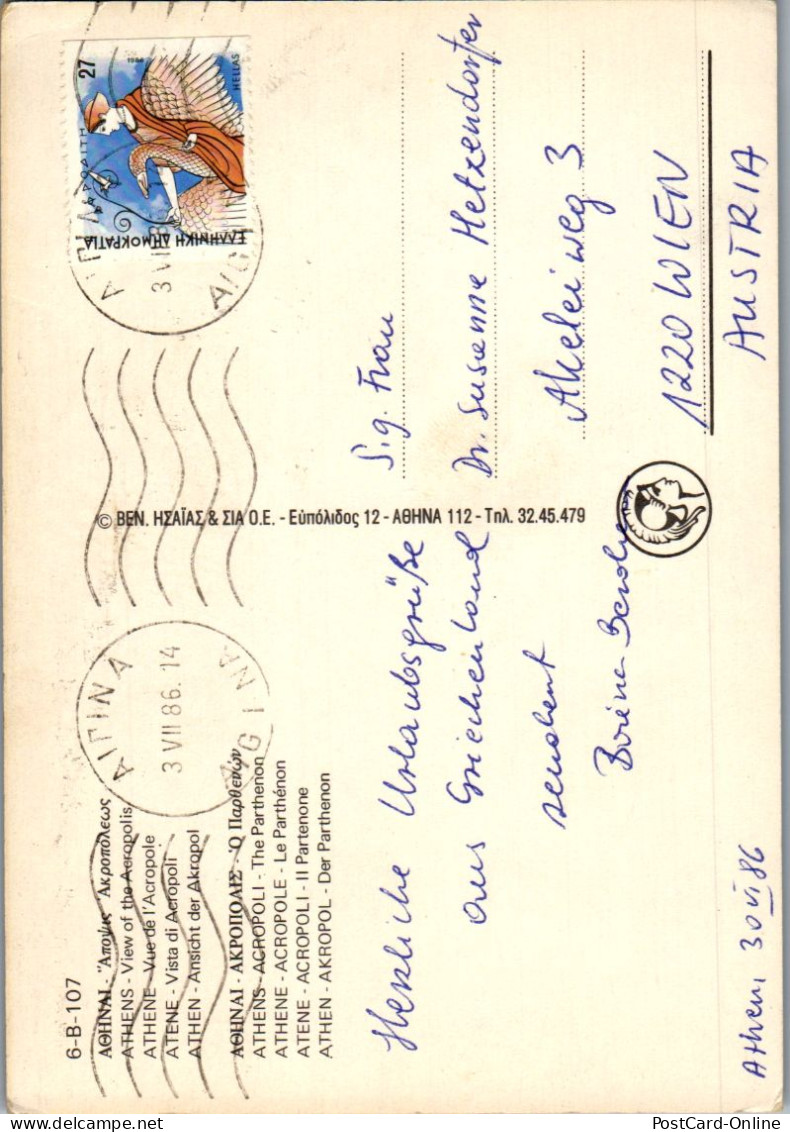 6-B-107
ΑΘΗΝΑΙ - Ἄποψις Ἀκροπόλεως
ATHENS - View of the Acropolis
ATHENE - Vue de l'Acropole
ATENE - Vista di Acropoli
ATHEN - Ansicht der Akropol
ΑΘΗΝΑΙ - ΑΚΡΟΠΟΛΙΣ - Ὁ Παρθενών
ATHENS - ACROPOLI - The Parthenon
ATHENE - ACROPOLE - Le Parthénon
ATENE - ACROPOLI - Il Partenone
ATHEN - AKROPOL - Der Parthenon
Herzliche Urlaubsgrüße
aus Griechenland
sendet
Athen, 30 VI 86
© ΒΕΝ. ΗΣΑΪΑΣ & ΣΙΑ Ο.Ε. - Εὐπόλιδος 12 - ΑΘΗΝΑ 112 - Τηλ. 32.45.479
ΑΙΓΙΝΑ
3 VII 86. 14
AIGINA
27
1986
HELLAS
ΑΦΡΟΔΙΤΗ
ΕΛΛΗΝΙΚΗ ΔΗΜΟΚΡΑΤΙΑ
S.g. Frau
Dr. Susanne Hetzendorfer
Akeleiweg 3
1220 WIEN
AUSTRIA
PostCard-Online